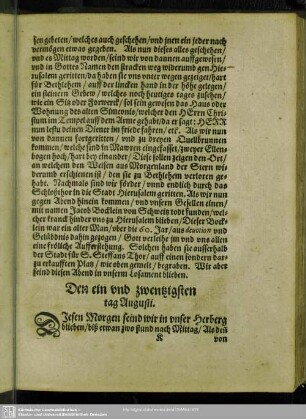 hen gebeten/ welches auch geschehen/ vnd jnen ein jeder nach
vermögen etwas gegeben. Als nun dieses alles geschehen/
vnd es Mittag worden/ seind wir von dannen auffgewesen/
vnd in Gottes Namen den stracken weg widerumb gen Hie-
rusalem geritten/ da haben sie vns vnter wegen gezeiget/ hart
für Bethlehem/ auff der lincken hand in der höhe gelegen/
ein steinern Gebew/ welches noch heutiges tages zusehen/
wie ein Sitz oder Forwerck/ sol sein gewesen das Haus oder
Wohnung des alten Simeonis/ welcher den HErrn Chri-
stum im Tempel auff dem Arme gehabt/ da er sagt: HERR
nun lestu deinen Diener im friede fahren/ etc. Als wir nun
von dannen fortgeritten/ vnd zu dreyen Quellbrunnen
kommen/ welche sind in Mawren eingefasset/ zweyer Ellen-
bogen hoch/ hart bey einander/ Diese sollen zeigen den Ort/
an welchem den Weisen aus Morgenland der Stern wi-
derumb erschienen ist/ den sie zu Bethlehem verloren ge-
habt. Nachmals sind wir förder/ vnnd endlich durch das
Schlosschor in die Stadt Hierusalem geritten. Als wir nun
gegen Abend hinein kommen/ vnd vnsern Gesellen einen/
mit namen Jacob Böcklein von Schweitz todt funden/ wel-
cher kranck hinder vns zu Hierusalem blieben/ Dieser Böck-
lein war ein alter Man/ ober die 60. Jar/ aus deuotion vnd
Gelübdnis dahin gezogen/ Gott verleihe jm vnd vns allen
eine fröliche Aufferstehung. Solchen haben sie ausserhalb
der Stadt für S. Steffans Thor/ auff einen sonder dar-
zu erkaufften Plan/ wie oben gemelt/ begraben. Wir aber
seind diesen Abend in vnserm Losament blieben.
Den ein vnd zwentzigsten
tag Augusti.
Diesen Morgen seind wir in vnser Herberg
blieben/ biß etwan zwo stund nach Mittag/ Als den
K
von